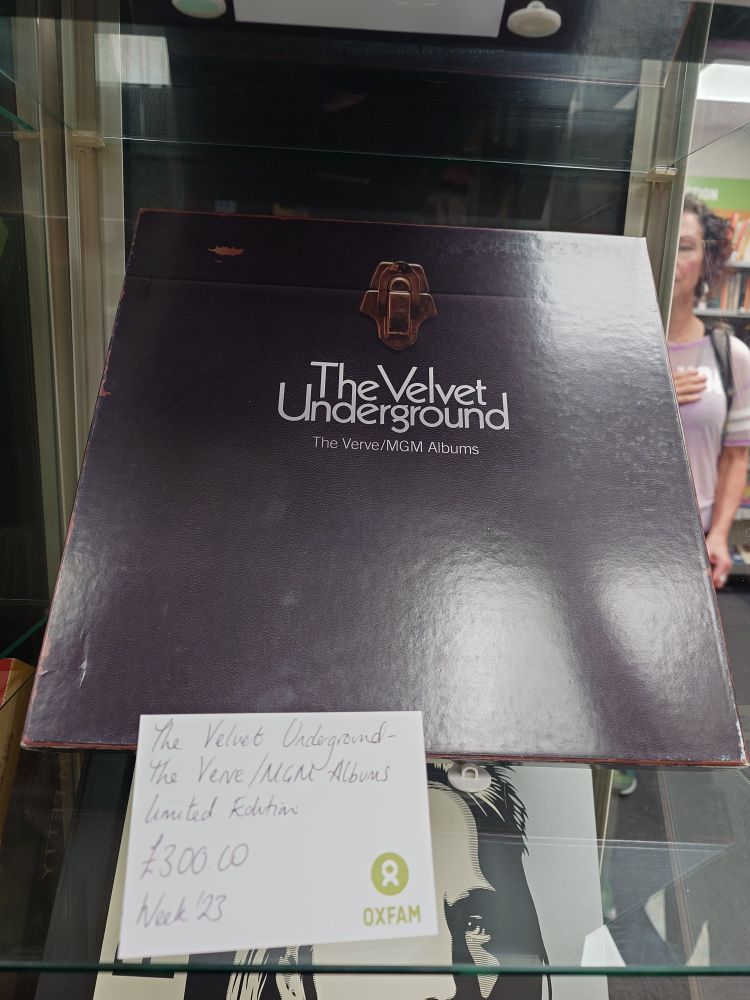 The Velvet
Underground
The Verve/MGM Albums
The Velvet Underground-
The Verve/MGM Albums
Limited Edition
£300.00
Week '23
OXFAM
CTION